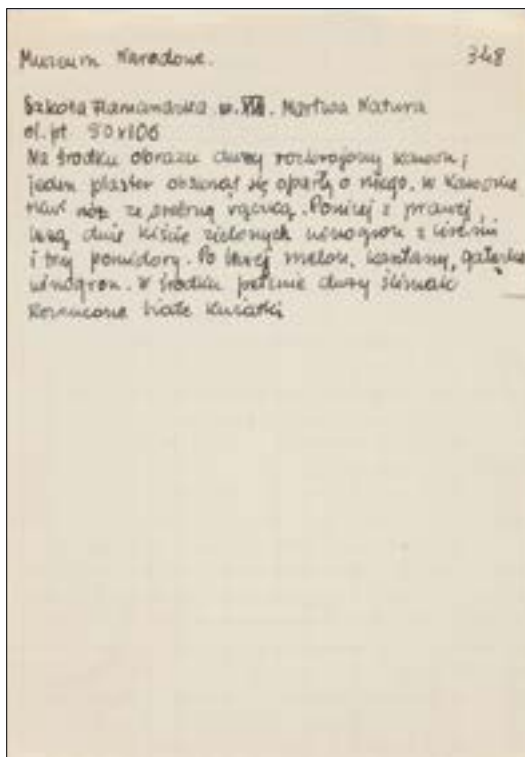 Muzeum Narodowe. 348
Szkoła Flamandzka w. XVII. Martwa Natura
ol. pt. 80x106
Na środku obrazu duży rozkrojony kawon,
jeden plaster obsunął się oparty o niego, w kawonie
tkwi nóż ze srebrną rączką. Poniżej z prawej,
leżą dwie kiście zielonych winogron z liśćmi
i trzy pomidory. Po lewej melon, kasztany, gałązka
winogron. W środku pełznie duży ślimak
Rozrzucone białe kwiatki